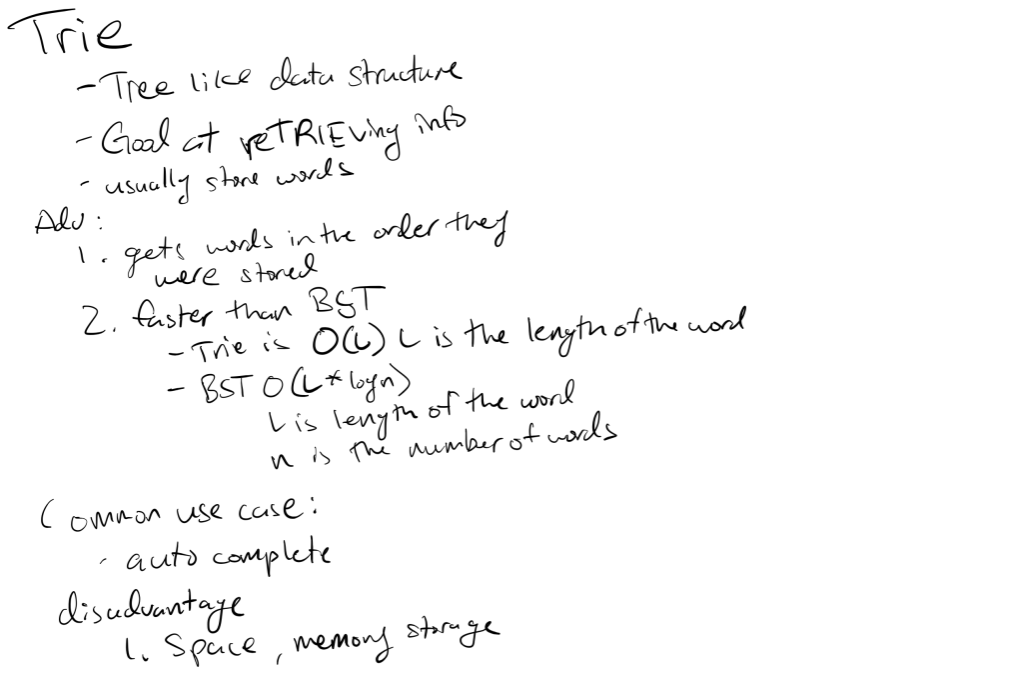 Trie
- Tree like data structure
- Good at reTRIEving info
- usually store words
Adv:
1. gets words in the order they
were stored
2. faster than BST
- Trie is O(L) L is the length of the word
- BST O(L*logn)
L is length of the word
n is the number of words
Common use case:
- auto complete
disadvantage
1. Space, memory storage